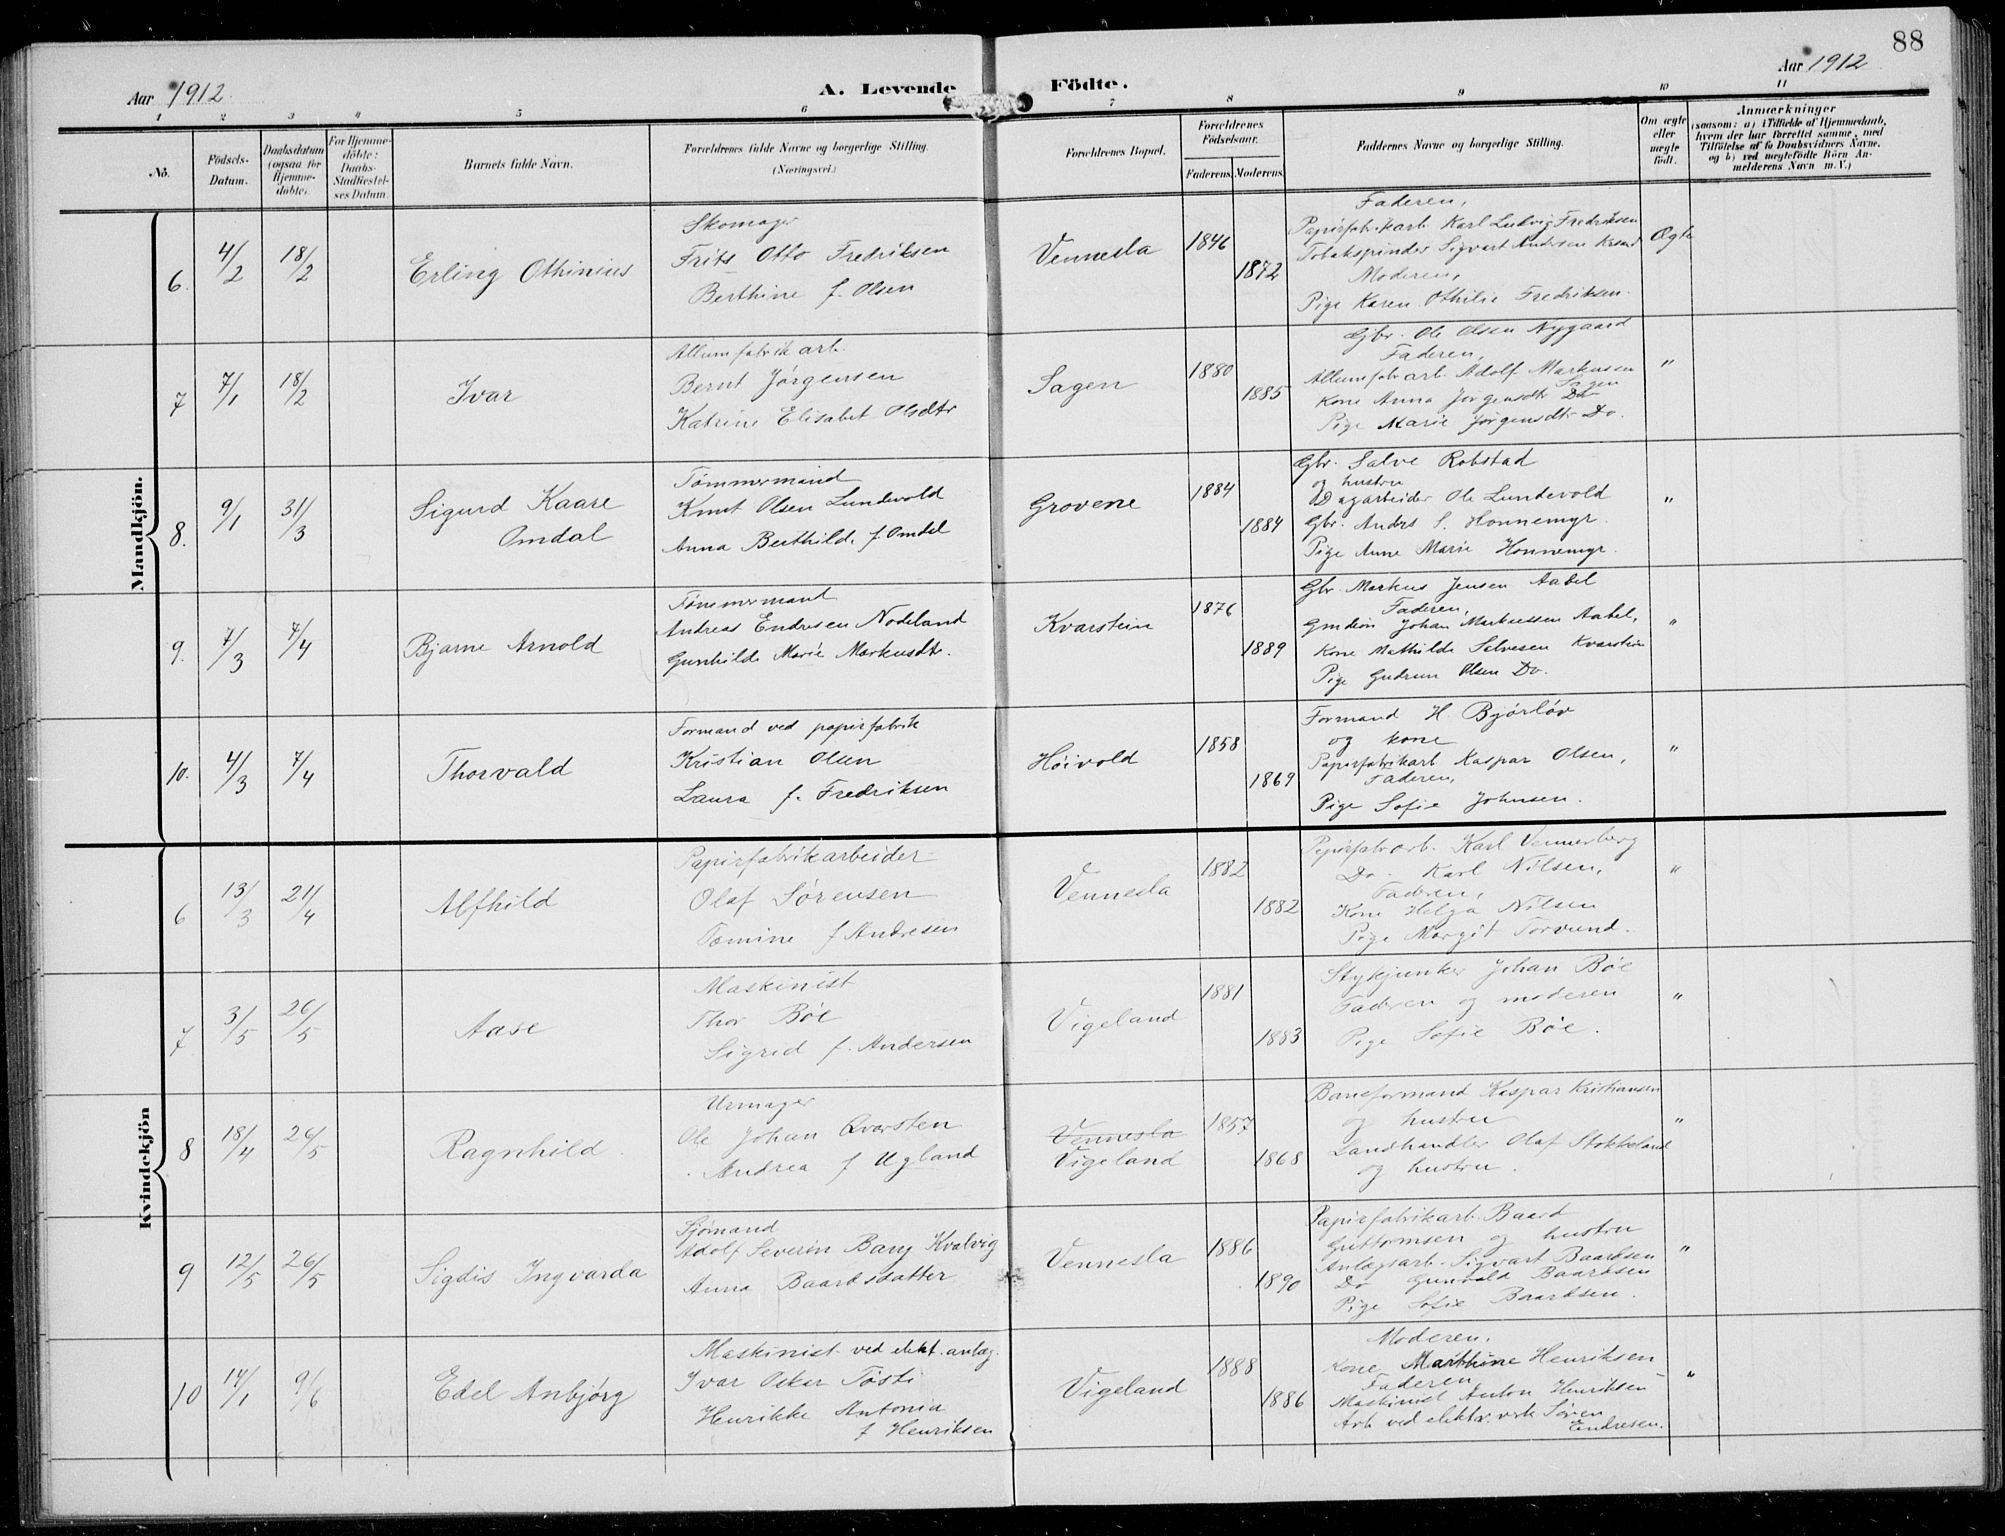 88
Aar 1912.
A. Levende
Födte.
Aar 1912
1 2 3 4 5 6 7 8 9 10 11
No.
Födsels-
Datum.
Daabsdatum
(ogsaa for
Hjemme-
döbte).
For Hjemme-
döbte:
Daabs-
Stadfæstel-
ses Datum.
Barnets fulde Navn.
Forældrenes fulde Navne og borgerlige Stilling.
(Næringsvei.)
Forældrenes Bopæl.
Forældrenes
Födselsaar.
Faderens. Moderens.
Faddernes Navne og borgerlige Stilling.
Om ægte
eller
uægte
födt.
Anmærkninger
(saasom: a) i Tilfælde af Hjemmedaab,
hvem der har forrettet samme, med
Tilföielse af to Daabsvidners Navne,
og b) ved uægtefödte Börn An-
melderens Navn m. V.)
Mandkjön.
6. 4/2 18/2
Erling Othinius
Skomager
Frits Otto Fredriksen
Berthine f. Olsen
Vennesla
1846
1872
Faderen,
Papirfabrikarb. Karl Ludvig Fredriksen
Tobakspinder Sigvart Andersen
Moderen,
Pige Karen Othilie Fredriksen.
Ægte
7 7/1 18/2
Ivar
Allumfabrik arb.
Bernt Jørgensen
Katrine Elisabet Olsdtr
Sagen
1880
1885
Gbr. Ole Olsen Nygaard
Faderen,
Allumfabr arb. Adolf Markusen
Sagen
Kone Anna Jørgensdtr Do
Pige Marie Jørgensdtr Do.
"
8. 9/1 31/3
Sigurd Kaare
Omdal
Tømmermand
Knut Olsen Lundevold
Anna Berthilde f. Omdal
Grovene
1884
1884
Gbr. Salve Robstad
og hustru
Dagarbeider Ole Lundevold
Gbr. Andrs S. Honnemyr.
Pige Anne Marie Honnemyr.
"
9. 7/3 7/4
Bjarne Arnold
Tømmermand
Andreas Endresen Nodeland
Gunhilde Marie Markusdtr.
Kvarstein
1876
1889
Gbr. Markus Jensen Aabel
Faderen,
Johan Markussen Aabel,
Kone Mathilde Salvesen Kvarstein
Pige Gudrun Olsen Do.
"
10. 4/3 7/4
Thorvald
Formand ved papirfabrik
Kristian Olsen
Laura f. Fredriksen
Høivold
1858
1869
Formand H. Bjørløv
og kone
Papirfabrikarb Kaspar Olsen,
Faderen,
Pige Sofie Johnsen.
"
Kvindekjön
6 13/3 21/4
Alfhild
Papirfabrikarbeider
Olaf Sørensen
Tomine f Andresen
Vennesla
1882
1882
Papirfabr arb. Karl Vennerberg
Do. Karl Nilsen,
Faderen,
Kone Helga Nilsen
Pige Margit Torvund.
"
7 3/5 26/5
Aase
Maskinist
Thor Bøe
Sigrid f. Andersen
Vigeland
1881
1883
Stykjunker Johan Bøe
Faderen og moderen
Pige Sofie Bøe.
"
8 18/4 26/5
Ragnhild
Urmager
Ole Johan Qvarsten
Andrea f Ugland
Vennesla
Vigeland
1857
1868
Baneformand Kaspar Kristiansen
og hustru
Landhandler Olaf Stokkeland
og hustru.
"
9 12/5 26/5
Sigdis Ingvarda
Sjømand
Adolf Severin Bang Kvalvig
Anna Baardsdatter
Vennesla
1886
1890
Papirfabrikarb. Baard
Guttormsen og hustru
Anlægsarb. Sigvart Baardsen
Do Gunvald Baardsen
Pige Sofie Baardsen.
"
10 14/1 9/6
Edel Anbjørg
Maskinist ved elekt. anlæg.
Ivar Oskar Tösti
Henrikke Antonia
f Henriksen
Vigeland
1888
1886
Moderen.
Kone Marthine Henriksen
Faderen
Maskinist Anton Henriksen
Arb ved elektr. verk Søren
Endresen.
"